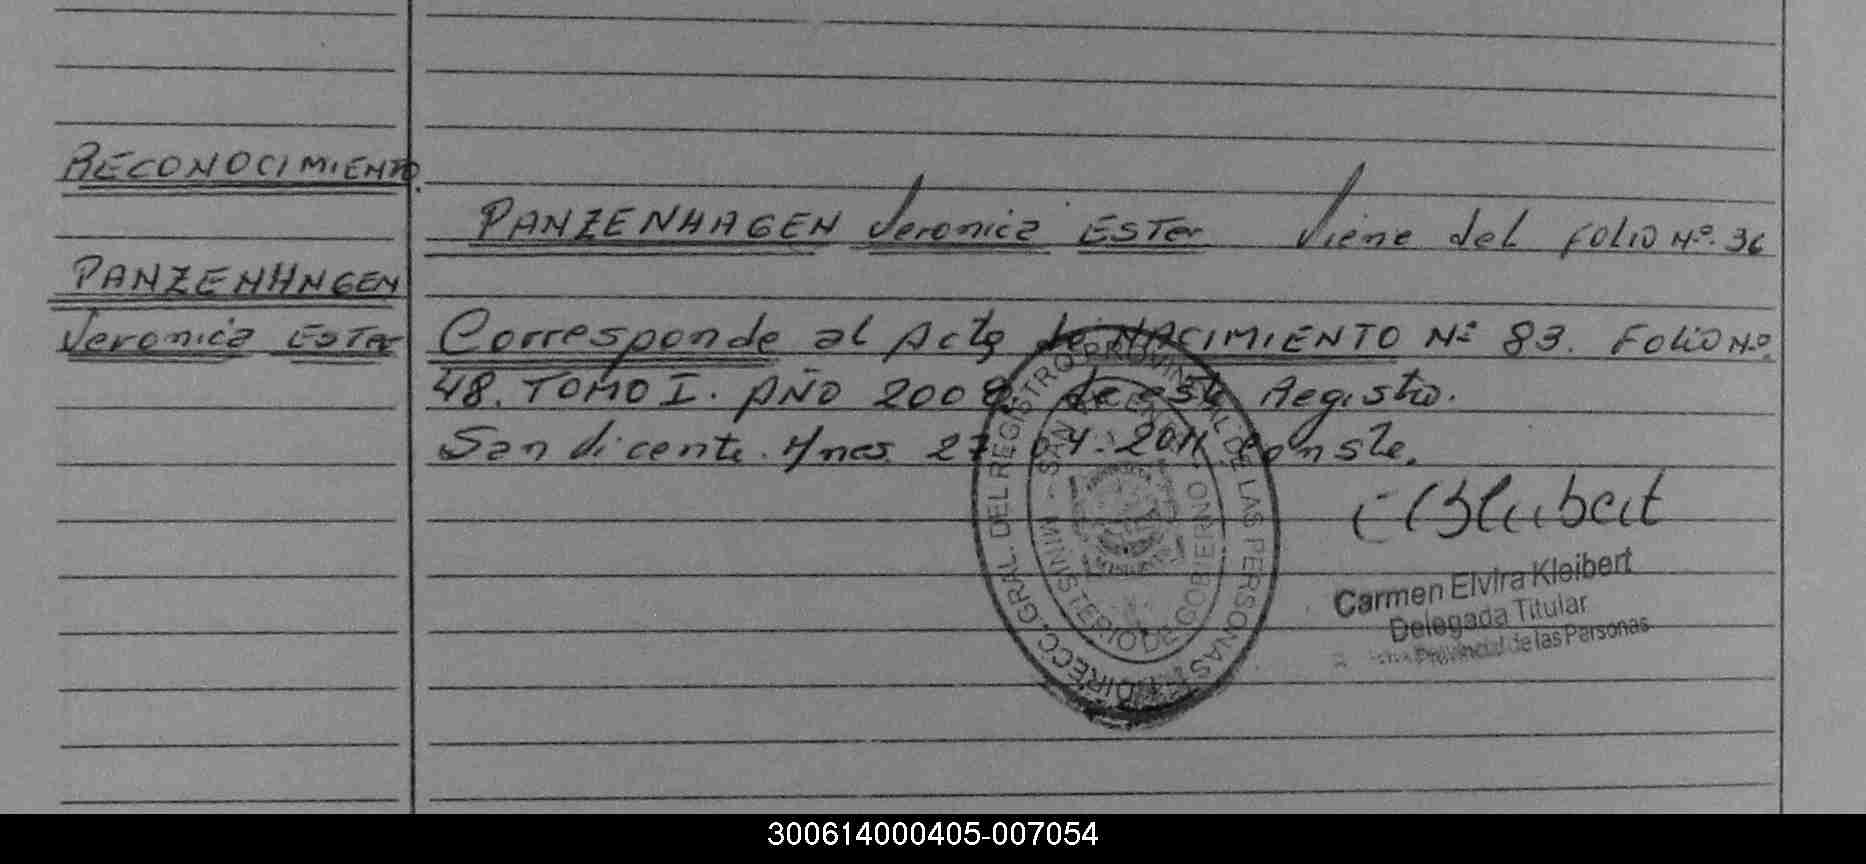 RECONOCIMIENTO.
PANZENHAGEN
Veronica ESTER
PANZENHAGEN Veronica ESTER Viene del FOLIO Nº. 36
Corresponde al Acta de NACIMIENTO Nº 83. FOLIO Nº.
48. TOMO I. AÑO 2008 de este Registro.
San Vicente. Mnes 27 04. 2011 conste.
Carmen Elvira Kleibert
Delegada Titular
Provincial de las Personas
DIRECC. GRAL. DEL REGISTRO PROVINCIAL DE LAS PERSONAS
SAN VICENTE - MINISTERIO DE GOBIERNO
300614000405-007054